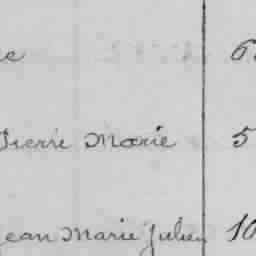 Pierre Marie 5
Jean Marie Julien 10